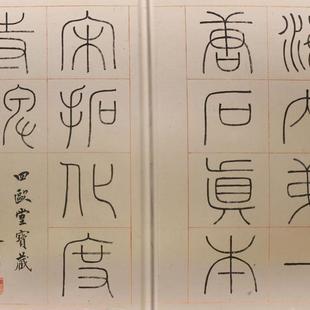 海内弟一
唐石眞本
宋拓化度
寺
四歐堂寶藏